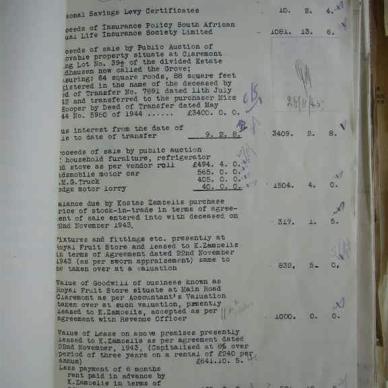 sonal Savings Levy Certificates 10. 2. 4.
oceeds of Insurance Policy South African
ual Life Insurance Society Limited 1081. 13. 6.
oceeds of sale by Public Auction of
ovable property situate at Claremont
ng Lot No. 39½ of the divided Estate
dhausen now called the Grove;
suring: 84 square roods, 88 square feet
gistered in the name of the deceased by
ed of Transfer No. 7891 dated 11th July
12 and transferred to the purchaser Miss
Hooper by Deed of Transfer dated May
44 No. 5960 of 1944 ...... £3400. 0. 0.
us interest from the date of
le to date of transfer 9. 2. 8. 3409. 2. 8.
roceeds of sale by public auction
household furniture, refrigerator
nd stove as per vendor roll £494. 4. 0.
dsmobile motor car 565. 0. 0.
.M.G. Truck 405. 0. 0.
odge motor lorry 40. 0. 0. 1504. 4. 0.
alance due by Kostas Zambelis purchase
rice of stock-in-trade in terms of agree-
ent of sale entered into with deceased on
22nd November 1943, 319. 1. 5.
ixtures and fittings etc. presently at
oyal Fruit Store and leased to K.Zambelis
in terms of Agreement dated 22nd November
1943 (as per sworn appraisement) same to
be taken over at a valuation 839. 5. 0.
Value of Goodwill of business known as
Royal Fruit Store situate at Main Road
Claremont as per Accountant's Valuation
taken over at such valuation, presently
leased to K.Zambelis, accepted as per
agreement with Revenue Officer 1000. 0. 0.
Value of Lease on above premises presently
leased to K.Zambelis as per agreement dated
22nd November, 1943, (Capitalised at 6% over
period of three years on a rental of £240 per
annum) £641.10. 5.
Less payment of 6 months
rent paid in advance by
K.Zambelis in terms of